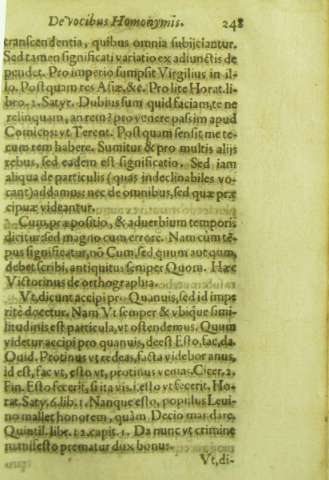 De vocibus Homonymis. 248
transcendentia, quibus omnia subijciantur.
Sed tamen significati variatio ex adiunctis de
pendet. Pro imperio sumpsit Virgilius in il-
lo. Postquam res Asiæ, &c. Pro lite Horat. li-
bro. 2. Satyr. Dubius sum quid faciam, te ne
relinquam, an rem? pro venere passim apud
Comicos: vt Terent. Postquam sensit me te-
cum rem habere. Sumitur & pro multis alijs
rebus, sed eadem est significatio. Sed iam
aliqua de particulis (quas indeclinabiles vo-
cant) addamus: nec de omnibus, sed quæ præ
cipuæ videantur.
Cum, præpositio, & aduerbium temporis
dicitur sed magno cum errore. Nam cum tẽ-
pus significatur, nõ Cum, sed quum aut qum,
debet scribi, antiquitus semper Quom. Hæc
Victorinus de orthographia.
Vt, dicunt accipi pro Quanuis, sed id impe
ritè docetur. Nam Vt semper & vbique simi-
litudinis est particula, vt ostendemus. Quum
videtur accipi pro quanuis, deest Esto, fac, da.
Ouid. Protinus vt redeas, facta videbor anus,
id est, fac vt, esto vt, protinus venias. Cicer. 2.
Fin. Esto fecerit, si ita vis. i. esto vt fecerit. Ho-
rat. Saty. 6. lib. 1. Nanque esto, populus Leui-
no mallet honorem, quàm Decio mandare.
Quintil. libr. 12. capit. 1. Da nunc vt crimine
manifesto prematur dux bonus.
Vt, di-